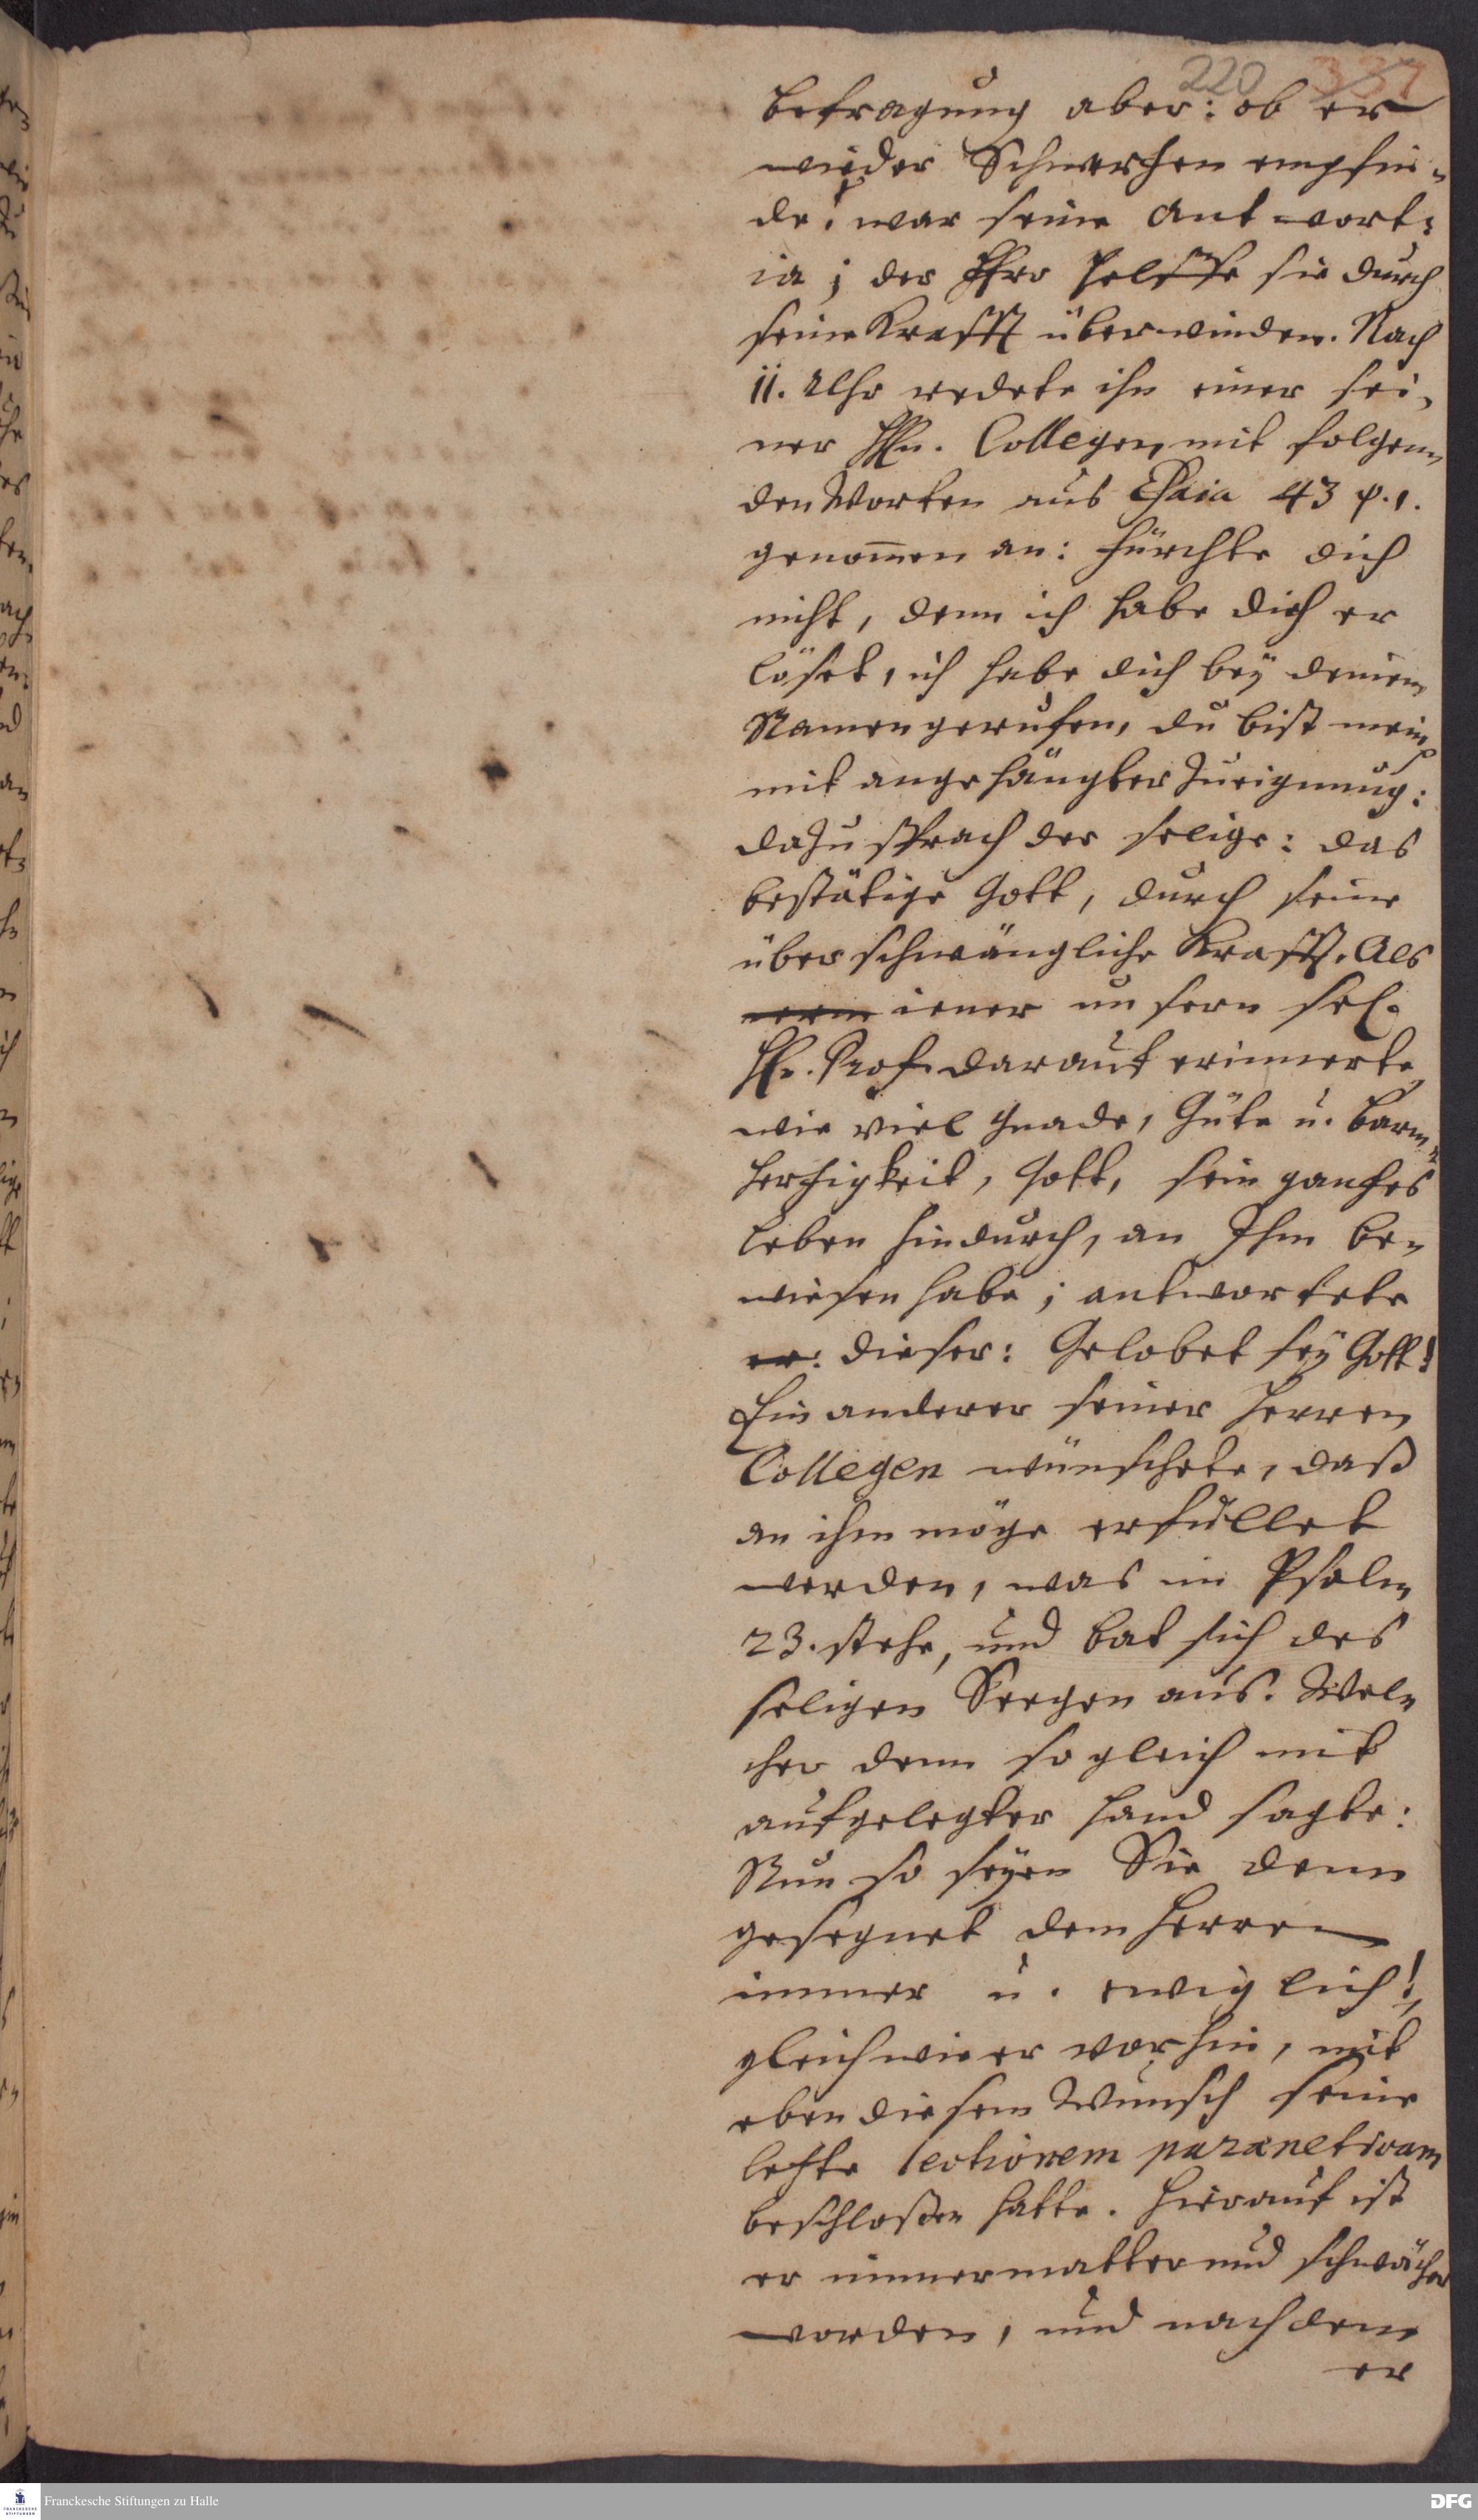 220 337
befragung aber: ob er
wieder Schmerzen empfin-
de? war seine Antwort:
ia; der Herr helffe sie durch
seine Krafft überwinden. Nach
11. Uhr redete ihn einer sei-
ner HHn. Collegen, mit folgen-
den Worten aus Esaia 43 v. 1.
genom̄en an: Fürchte dich
nicht, denn ich habe dich er
löset, ich habe dich bey deinem
Namen gerufen, du bist mein
mit angehängter Zueignung:
dazu sprach der selige: das
bestätige Gott, durch seine
überschwängliche Krafft. Als
iener unsern sel.
Hr. Prof. darauf erinnerte,
wie viel Gnade, Güte u. Barm-
hertzigkeit, Gott, sein gantzes
Leben hindurch, an Ihm be-
wiesen habe; antwortete
er: dieser: Gelobet sey Gott!
Ein anderer seiner Herren
Collegen wünschete, daß
an ihm möge erfüllet
werden, was im Psalm
23. stehe, und bat sich des
seligen Seegen aus. Wel-
cher denn so gleich mit
aufgelegter Hand sagte:
Nun so seyen Sie denn
gesegnet dem Herren
immer u. ewiglich!,
gleichwie er vorhin, mit
eben diesem Wunsch seine
letzte lectionem paræneticam
beschloßen hatte. Hierauf ist
er immer matter und schwächer
worden, und nachdem
er
Franckesche Stiftungen zu Halle
DFG